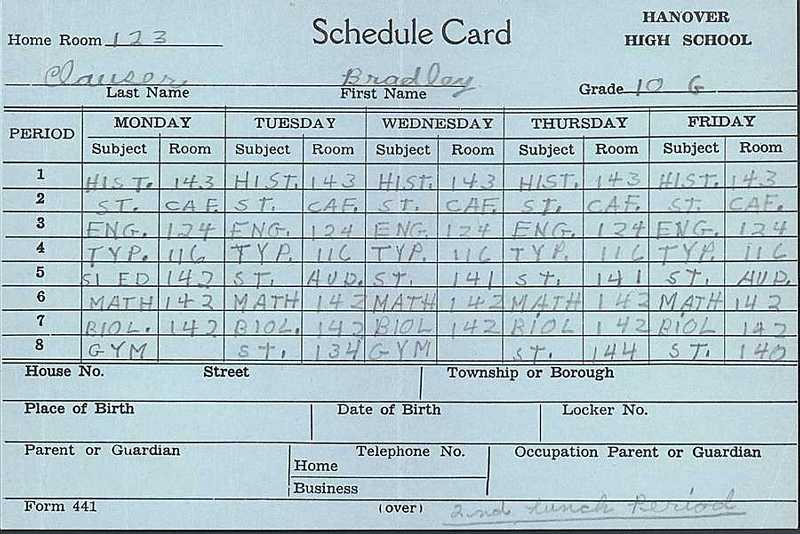 Home Room 123 Schedule Card HANOVER HIGH SCHOOL
Clauser Bradley
Last Name First Name Grade 10 G
PERIOD MONDAY TUESDAY WEDNESDAY THURSDAY FRIDAY
Subject Room Subject Room Subject Room Subject Room Subject Room
1 HIST. 143 HIST. 143 HIST. 143 HIST. 143 HIST. 143
2 ST. CAF. ST. CAF. ST. CAF. ST. CAF. ST. CAF.
3 ENG. 124 ENG. 124 ENG. 124 ENG. 124 ENG. 124
4 TYP. 116 TYP. 116 TYP. 116 TYP. 116 TYP. 116
5 ED 142 ST. AUD. ST. 141 ST. 141 ST. AUD.
6 MATH 142 MATH 142 MATH 142 MATH 142 MATH 142
7 BIOL. 142 BIOL. 142 BIOL 142 BIOL 142 BIOL 142
8 GYM ST. 134 GYM ST. 144 ST. 140
House No. Street Township or Borough
Place of Birth Date of Birth Locker No.
Parent or Guardian Telephone No. Occupation Parent or Guardian
Home
Business
Form 441 (over) 2nd Lunch Period